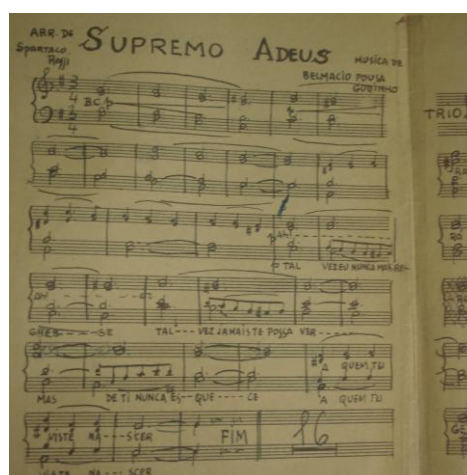 ARR. DE
Spartaco
Rossi
SUPREMO ADEUS
MUSICA DE
BELMACIO POUSA
GODINHO
3
4
B.C.
3
4
TRIO
AH
TAL VEZ EU NUNCA MAIS RE-
OH
GRES---SE TAL---VEZ JAMAIS TE POSSA VER----
MAS DE TI NUNCA ES--QUE----CE A QUEM TU
A QUEM TU
VISTE NA---SCER FIM 16
VISTE NA---SCER